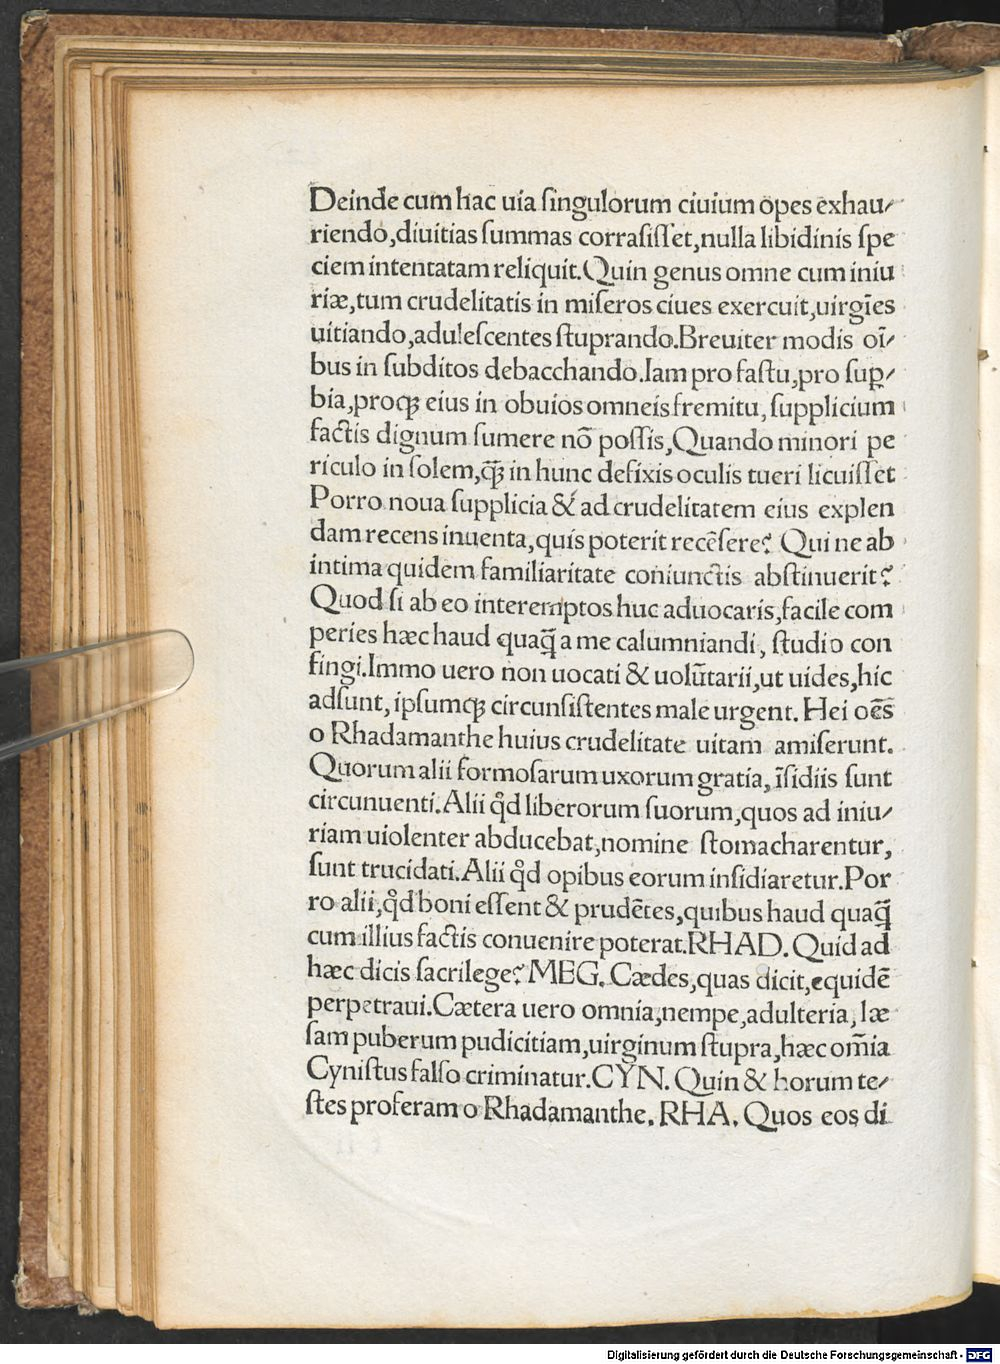 Deinde cum hac uia ſingulorum ciuium opes exhau⸗
riendo,diuitias ſummas corraſiſſet,nulla libidinis ſpe
ciem intentatam reliquit.Quin genus omne cum iniu
riæ,tum crudelitatis in miſeros ciues exercuit,uirgīes
uitiando,aduleſcentes ſtuprando.Breuiter modis oī⸗
bus in ſubditos debacchando.Iam pro faſtu,pro ſuꝑ⸗
bia,proqꝫ eius in obuios omneis fremitu, ſupplicium
factis dignum ſumere nō poſſis,Quando minori pe
riculo in ſolem,q̄ꝫ in hunc defixis oculis tueri licuiſſet
Porro noua ſupplicia & ad crudelitatem eius explen
dam recens inuenta,quis poterit recēſere? Qui ne ab
intima quidem familiaritate coniunctis abſtinuerit?
Quod ſi ab eo interemptos huc aduocaris,facile com
peries hæc haud quaq̄ a me calumniandi, ſtudio con
fingi.Immo uero non uocati & uolūtarii,ut uides,hic
adſunt, ipſumqꝫ circunſiſtentes male urgent. Hei oēs
o Rhadamanthe huius crudelitate uitam amiſerunt.
Quorum alii formoſarum uxorum gratia, īſidiis ſunt
circunuenti.Alii qd̓ liberorum ſuorum,quos ad iniu⸗
riam uiolenter abducebat,nomine ſtomacharentur,
ſunt trucidati.Alii qd̓ opibus eorum inſidiaretur.Por
ro alii,qd̓ boni eſſent & prudētes,quibus haud quaq̄
cum illius factis conuenire poterat.RHAD. Quid ad
hæc dicis ſacrilege? MEG. Cædes,quas dicit,equidē
perpetraui.Cætera uero omnia,nempe,adulteria, læ
ſam puberum pudicitiam,uirginum ſtupra,hæc om̄ia
Cyniſtus falſo criminatur.CYN. Quin & horum te⸗
ſtes proferam o Rhadamanthe. RHA. Quos eos di
Digitalisierung gefördert durch die Deutsche Forschungsgemeinschaft - DFG